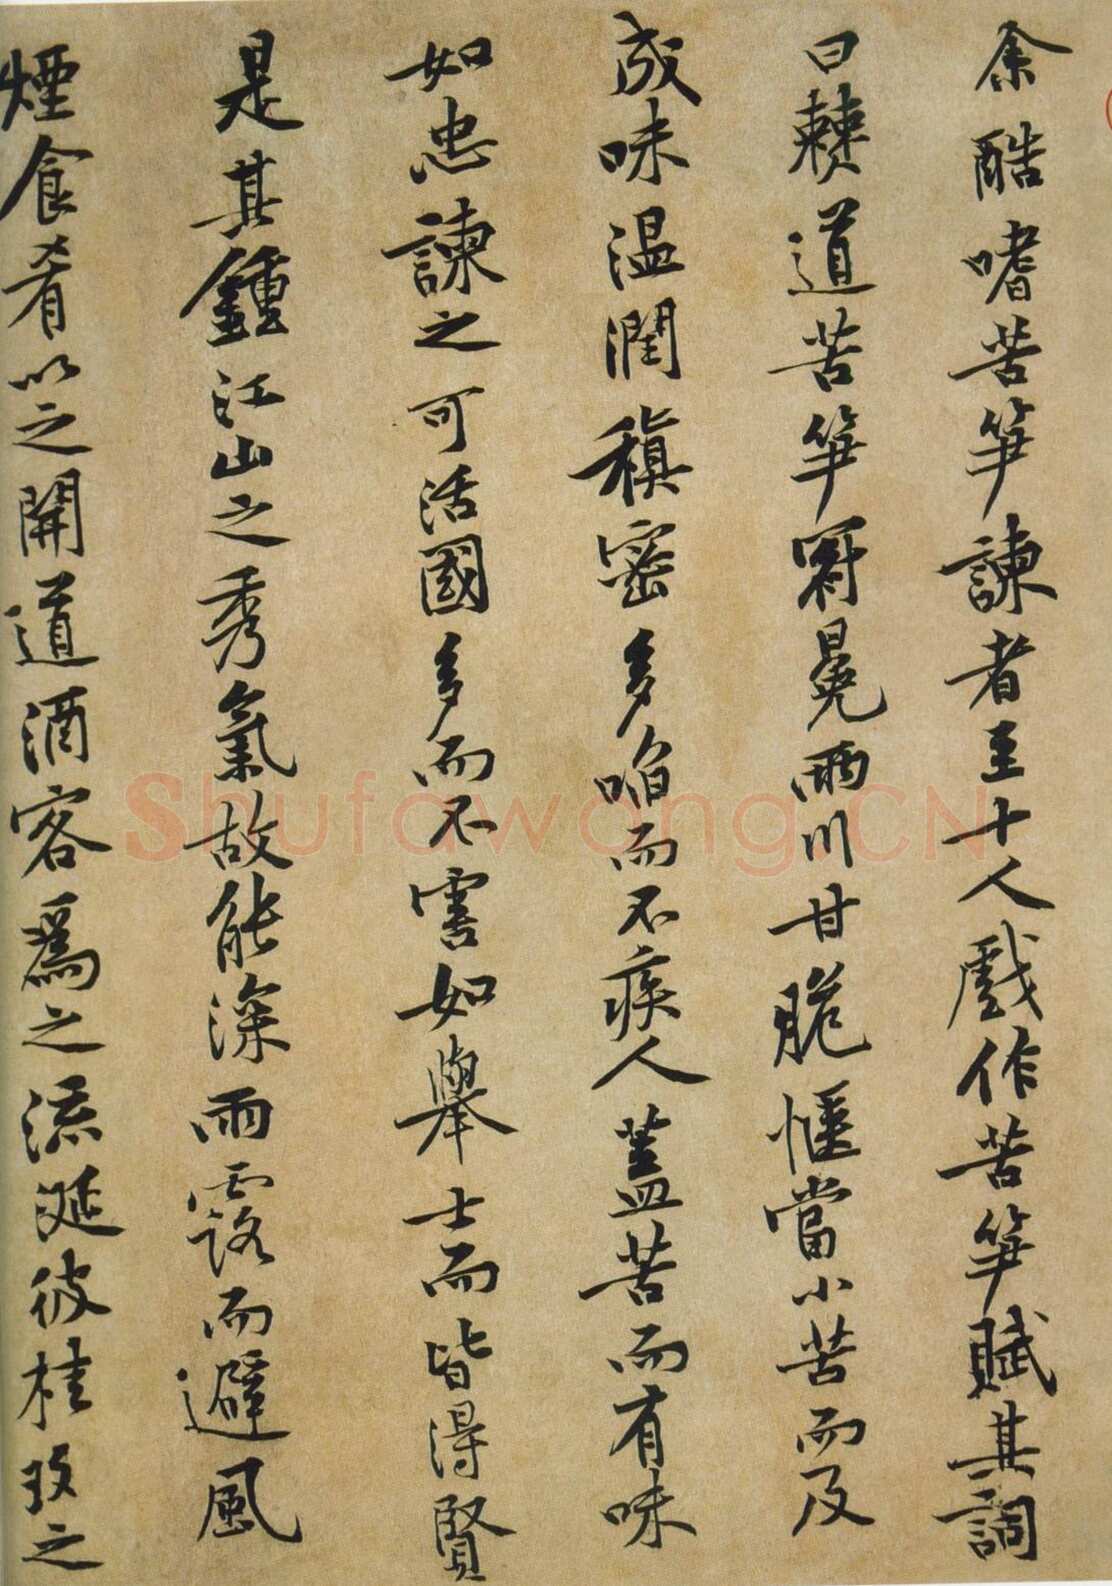 余酷嗜苦笋諫者至十人戲作苦笋賦其詞
曰僰道苦笋冠冕兩川甘脆愜當小苦而及
成味溫潤稹密多啗而不疾人蓋苦而有味
如忠諫之可活國多而不害如舉士而皆得賢
是其鍾江山之秀氣故能深雨露而避風
煙食肴以之開道酒客為之流涎彼桂玫之
Shufawang.CN